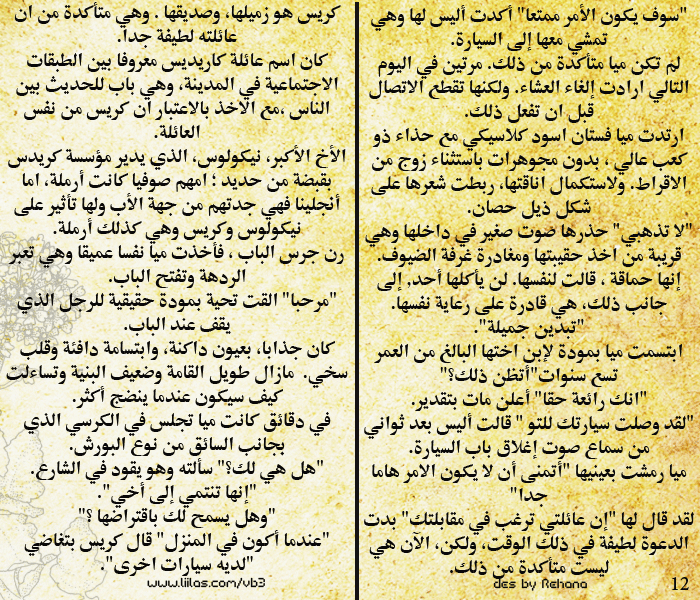 "سوف يكون الأمر ممتعا" أكدت أليس لها وهي
تمشي معها إلى السيارة.
لم تكن ميا متأكدة من ذلك. مرتين في اليوم
التالي ارادت إلغاء العشاء. ولكنها تقطع الاتصال
قبل ان تفعل ذلك.
ارتدت ميا فستان اسود كلاسيكي مع حذاء ذو
كعب عالي ، بدون مجوهرات باستثناء زوج من
الاقراط. ولاستكمال اناقتها، ربطت شعرها على
شكل ذيل حصان.
"لا تذهبي" حذرها صوت صغير في داخلها وهي
قريبة من اخذ حقيبتها ومغادرة غرفة الضيوف.
إنها حماقة ، قالت لنفسها. لن يأكلها أحد, إلى
جانب ذلك، هي قادرة على رعاية نفسها.
"تبدين جميلة".
ابتسمت ميا بمودة لإبن اختها البالغ من العمر
تسع سنوات"أتظن ذلك؟"
"انك رائعة حقا" أعلن مات بتقدير.
"لقد وصلت سيارتك للتو " قالت أليس بعد ثواني
من سماع صوت إغلاق باب السيارة.
ميا رمشت بعينيها "أتمنى أن لا يكون الامر هاما
جدا"
لقد قال لها "إن عائلتي ترغب في مقابلتك" بدت
الدعوة لطيفة في ذلك الوقت، ولكن، الآن هي
ليست متأكدة من ذلك.
des by Rehana
12
كريس هو زميلها، وصديقها . وهي متأكدة من ان
عائلته لطيفة جدا.
كان اسم عائلة كاريديس معروفا بين الطبقات
الاجتماعية في المدينة، وهي باب للحديث بين
الناس ،مع الاخذ بالاعتبار ان كريس من نفس
العائلة.
الأخ الأكبر، نيكولوس، الذي يدير مؤسسة كريدس
بقبضة من حديد ؛ امهم صوفيا كانت أرملة، اما
أنجلينا فهي جدتهم من جهة الأب ولها تأثير على
نيكولوس وكريس وهي كذلك أرملة.
رن جرس الباب ، فأخذت ميا نفسا عميقا وهي تعبر
الردهة وتفتح الباب.
"مرحبا" القت تحية بمودة حقيقية للرجل الذي
يقف عند الباب.
كان جذابا، بعيون داكنة، وابتسامة دافئة وقلب
سخي. مازال طويل القامة وضعيف البنية وتساءلت
كيف سيكون عندما ينضج أكثر.
في دقائق كانت ميا تجلس في الكرسي الذي
بجانب السائق من نوع البورش.
"هل هي لك؟" سألته وهو يقود في الشارع.
"إنها تنتمي إلى أخي".
"وهل يسمح لك باقتراضها ؟"
"عندما أكون في المنزل" قال كريس بتغاضي
"لديه سيارات اخرى".
www.liilas.com/vb3